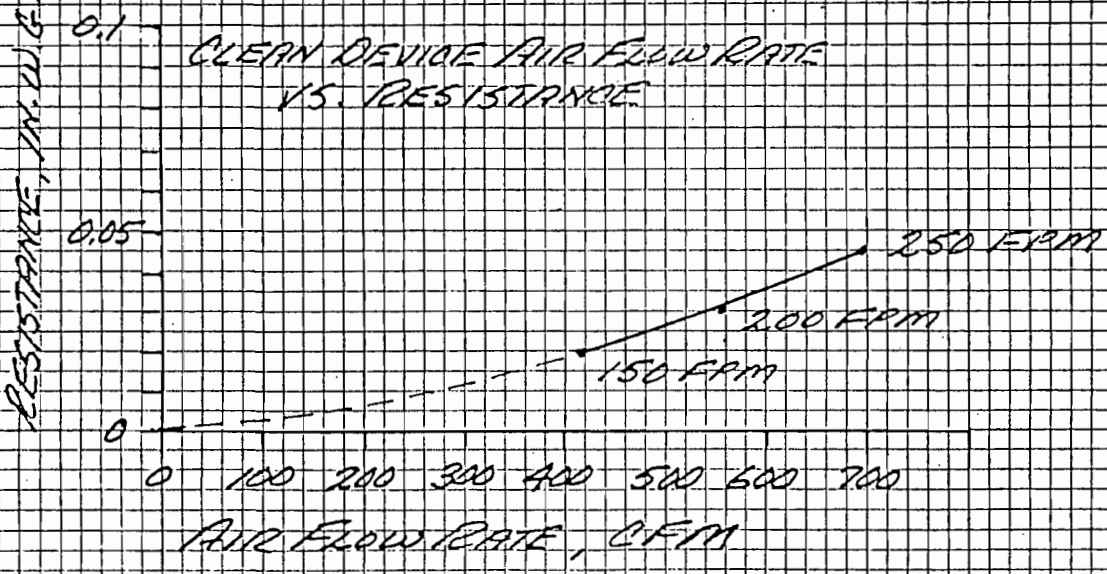 RESISTANCE, IN. W.G
0.1
CLEAN DEVICE AIR FLOW RATE
VS. RESISTANCE
0.05
250 FPM
200 FPM
150 FPM
0
0 100 200 300 400 500 600 700
AIR FLOW RATE, CFM